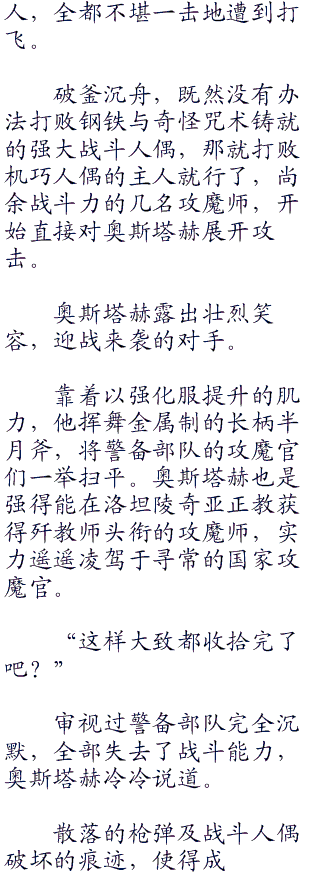 人，全都不堪一击地遭到打
飞。
破釜沉舟，既然没有办
法打败钢铁与奇怪咒术铸就
的强大战斗人偶，那就打败
机巧人偶的主人就行了，尚
余战斗力的几名攻魔师，开
始直接对奥斯塔赫展开攻
击。
奥斯塔赫露出壮烈笑
容，迎战来袭的对手。
靠着以强化服提升的肌
力，他挥舞金属制的长柄半
月斧，将警备部队的攻魔官
们一举扫平。奥斯塔赫也是
强得能在洛坦陵奇亚正教获
得歼教师头衔的攻魔师，实
力遥遥凌驾于寻常的国家攻
魔官。
“这样大致都收拾完了
吧？”
审视过警备部队完全沉
默，全部失去了战斗能力，
奥斯塔赫冷冷说道。
散落的枪弹及战斗人偶
破坏的痕迹，使得成